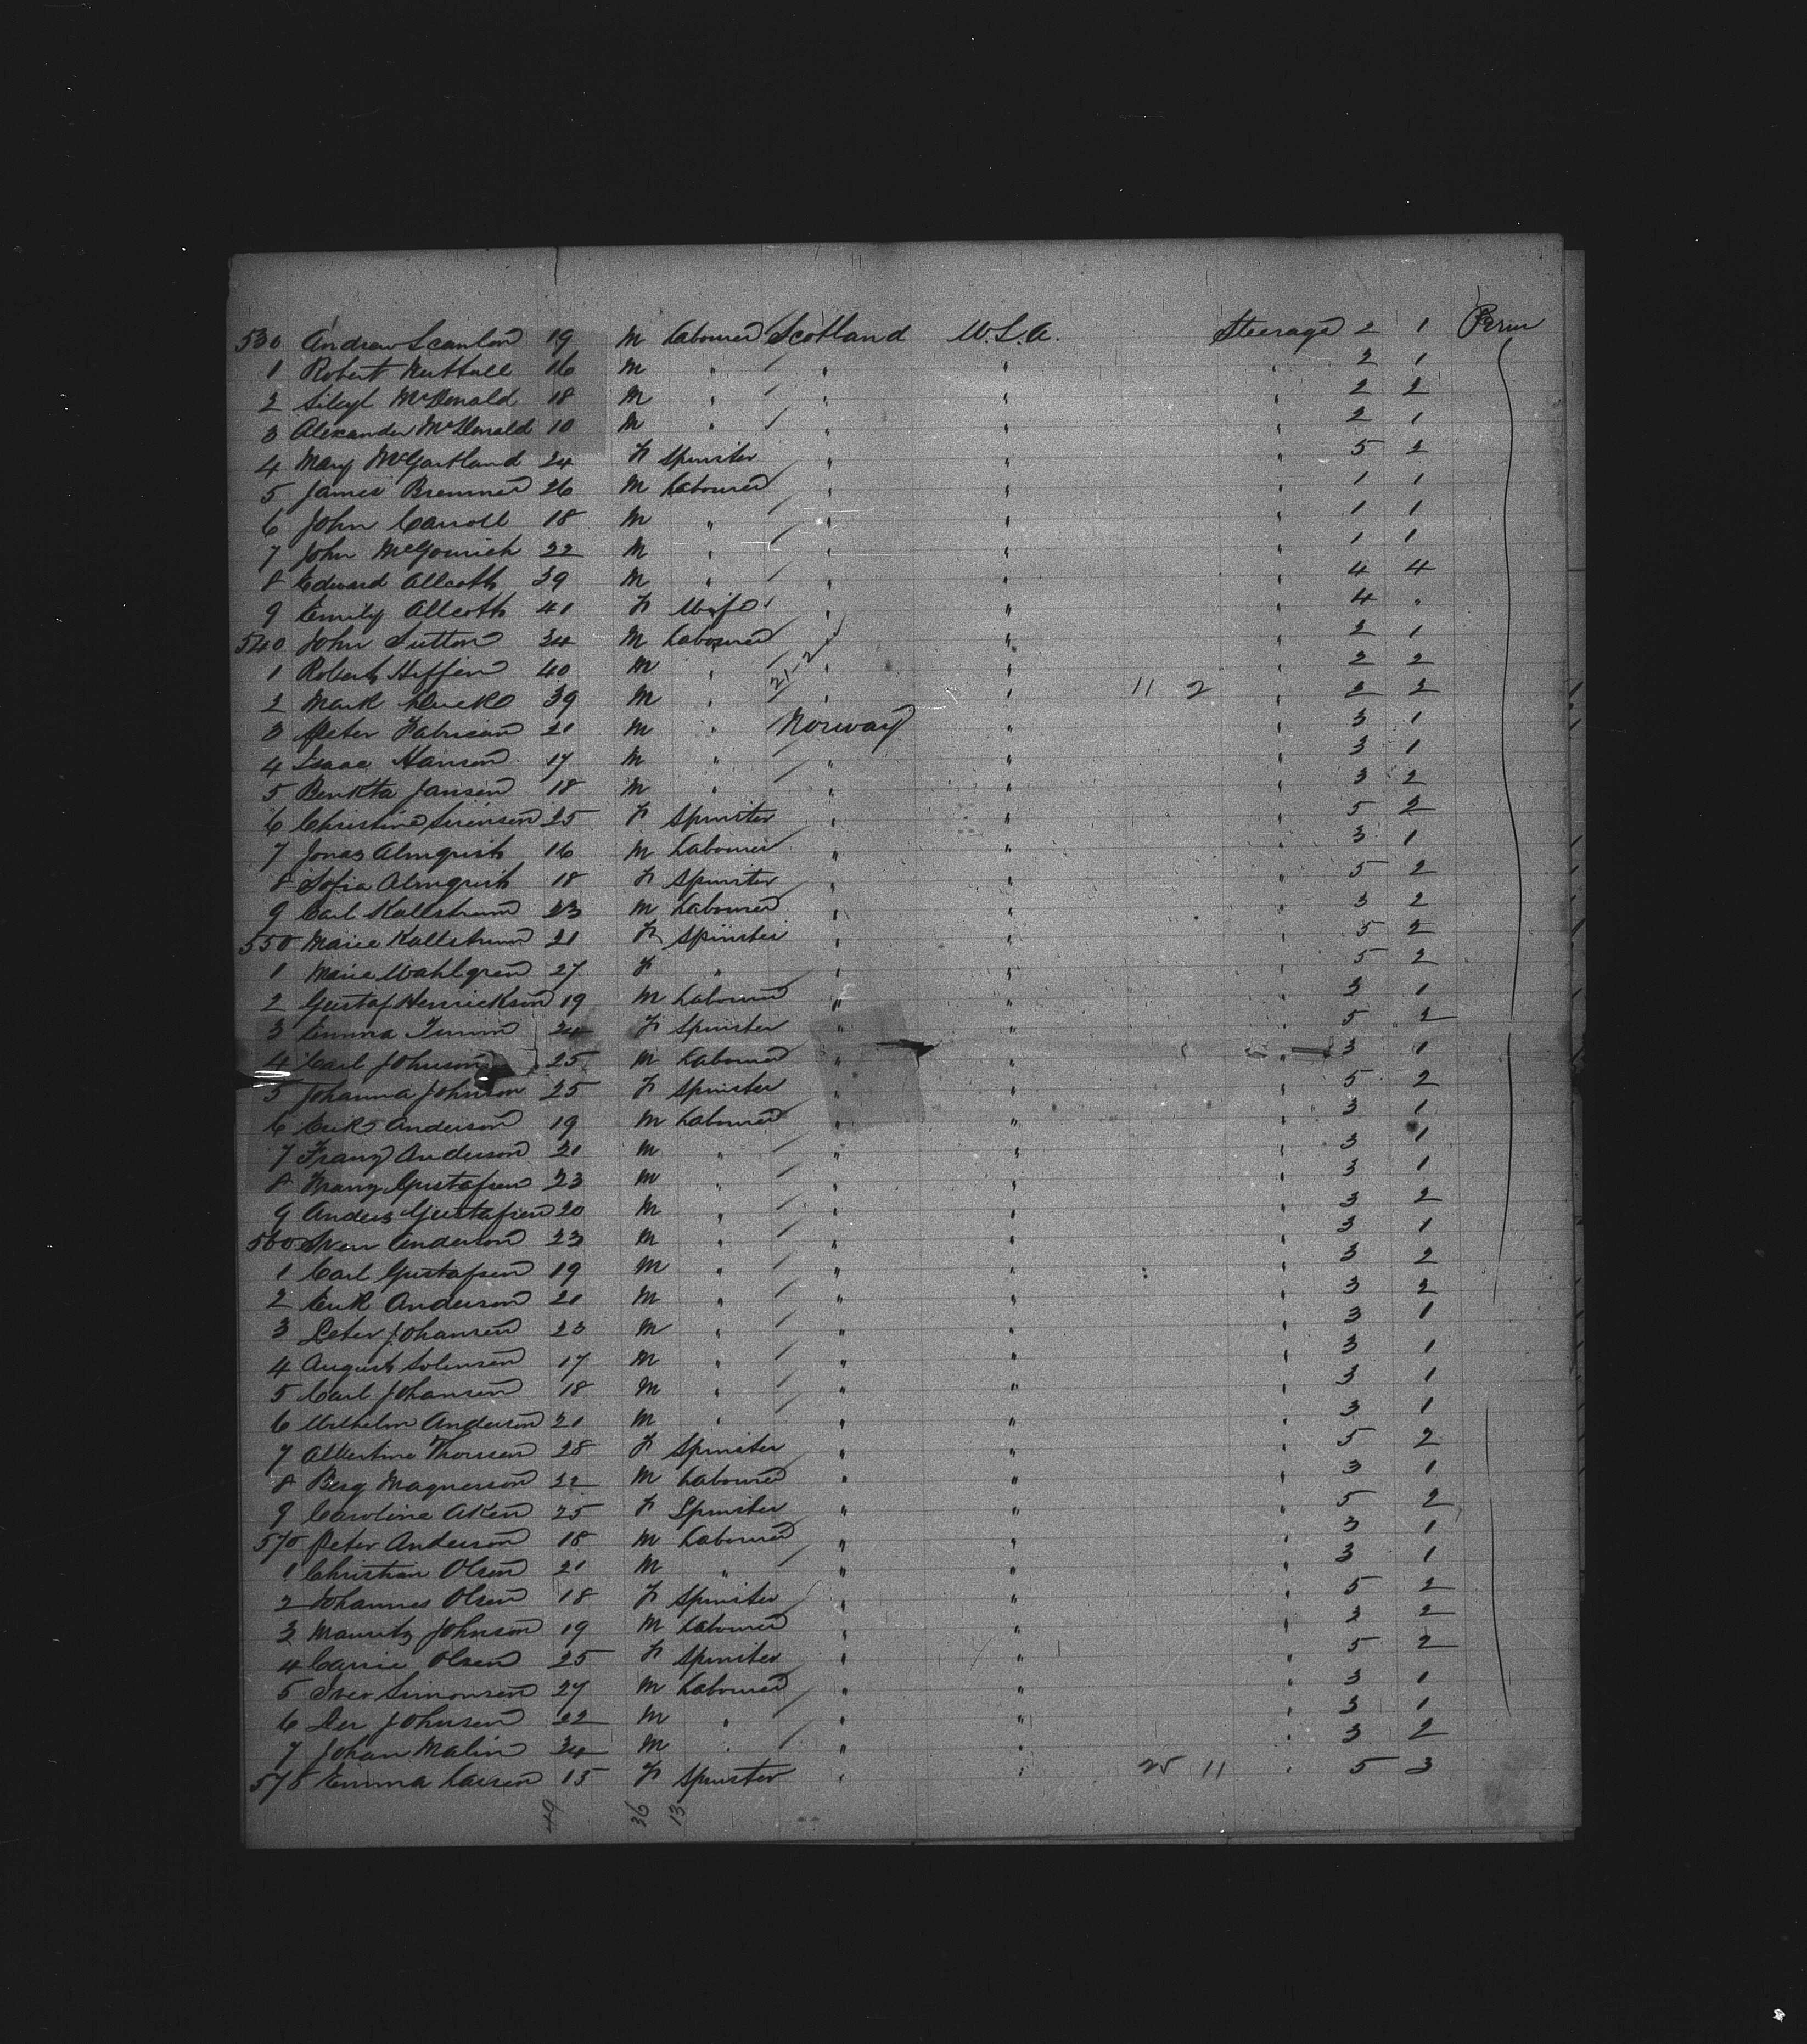 530 Andrew Scanlon 19 M Labourer Scotland U.S.A. Steerage 2 1 Perm
1 Robert Nuttall 16 M " " " " 2 1
2 McDonald 18 M " " " " 2 2
3 Alexander McDonald 10 M " " " " 2 1
4 Mary McGartland 24 F Spinster " " " 5 2
5 James Bremner 26 M Labourer " " " 1 1
6 John Carroll 18 M " " " " 1 1
7 John 22 M " " " " 1 1
8 Edward Allcott 39 M " " " " 4 4
9 Emily Allcott 41 F Wife " " " 4 "
540 John Sutton 34 M Labourer " " " 2 1
1 Robert 40 M " 21-2 " " " 2 2
2 Mark 39 M " " " 11 2 " 2 2
3 Peter 21 M " Norway " " 3 1
4 Isaac Hanson 17 M " " " " 3 1
5 Benkta Jansen 18 M " " " " 3 2
6 Christine Sorenson 25 F Spinster " " " 5 2
7 Jonas Almquist 16 M Labourer " " " 3 1
8 Sofia Almquist 18 F Spinster " " " 5 2
9 Carl Kallstrum 23 M Labourer " " " 3 2
550 Marie Kallstrum 21 F Spinster " " " 5 2
1 Marie Wahlgren 27 F " " " " 5 2
2 Gustaf Henrickson 19 M Labourer " " " 3 1
3 Emma 24 F Spinster " " " 5 2
4 Carl Johnson 25 M Labourer " " " 3 1
5 Johanna Johnson 25 F Spinster " " " 5 2
6 Erik Anderson 19 M Labourer " " " 3 1
7 Franz Anderson 21 M " " " " 3 1
8 Franz Gustafsen 23 M " " " " 3 1
9 Anders Gustafsen 20 M " " " " 3 2
560 Sven Anderson 23 M " " " " 3 1
1 Carl Gustafsen 19 M " " " " 3 2
2 Erik Anderson 21 M " " " " 3 2
3 Peter Johansen 23 M " " " " 3 1
4 August 17 M " " " " 3 1
5 Carl Johansen 18 M " " " " 3 1
6 Wilhelm Anderson 21 M " " " " 3 1
7 Albertine Thorsen 28 F Spinster " " " 5 2
8 Berg Magnerson 22 M Labourer " " " 3 1
9 Caroline Aken 25 F Spinster " " " 5 2
570 Peter Anderson 18 M Labourer " " " 3 1
1 Christian Olsen 21 M " " " " 3 1
2 Johannes Olsen 18 F Spinster " " " 5 2
3 Mauritz Johnson 19 M Labourer " " " 3 2
4 Carrie Olsen 25 F Spinster " " " 5 2
5 Iver Simonsen 27 M Labourer " " " 3 1
6 Johnsen 22 M " " " " 3 1
7 Johan Malin 34 M " " " " 3 2
578 Emma Larsen 15 F Spinster " " 25 11 " 5 3
49 36 13